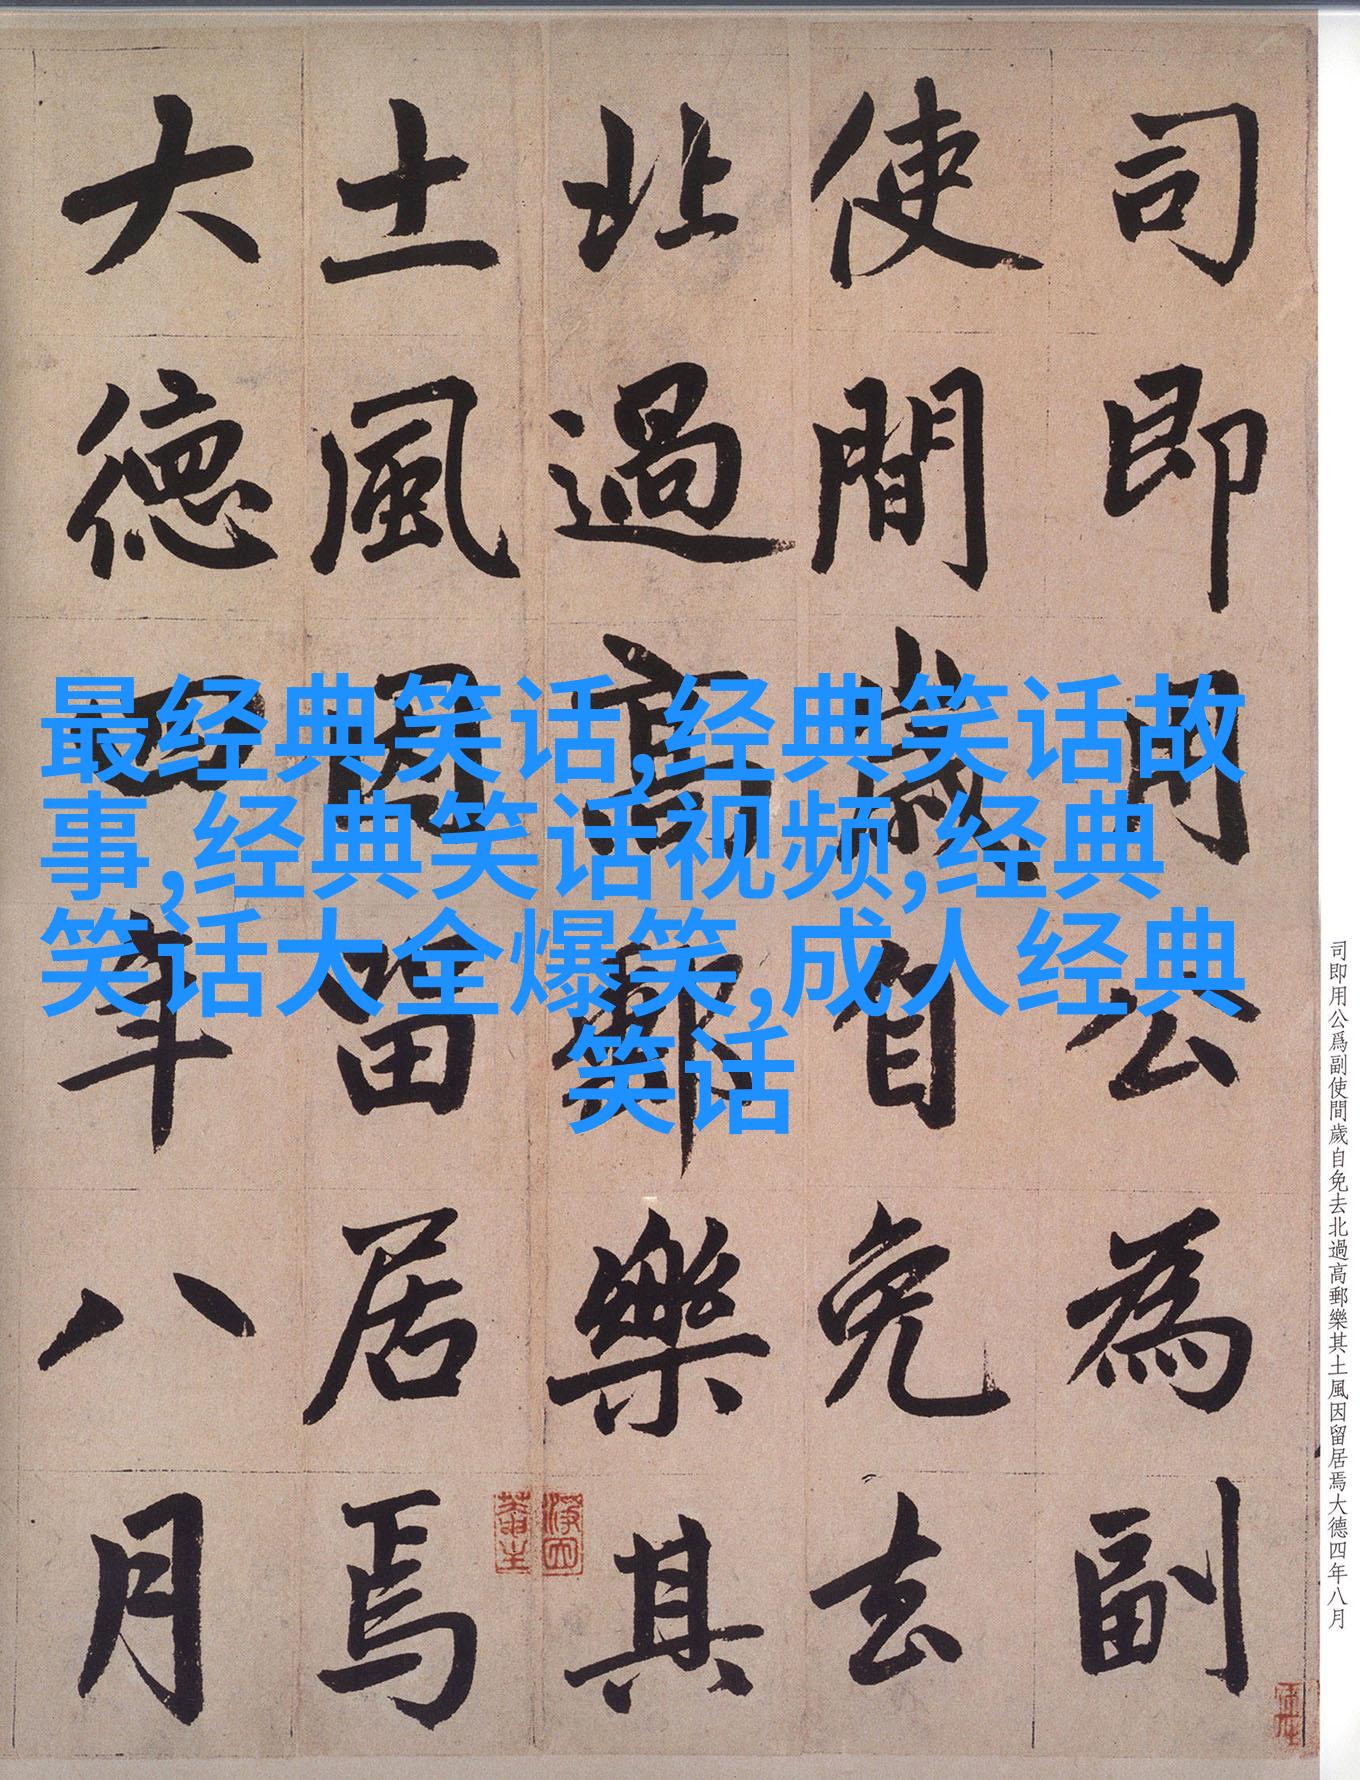 司即用公為副
使間歲自免去
北過高郵樂其
土風因留居焉
大德四年八月
最经典笑话,经典笑话故
事,经典笑话视频,经典
笑话大全爆笑,成人经典
笑话
司即用公爲副使間歲自免去北過高郵樂其土風因留居焉大德四年八月